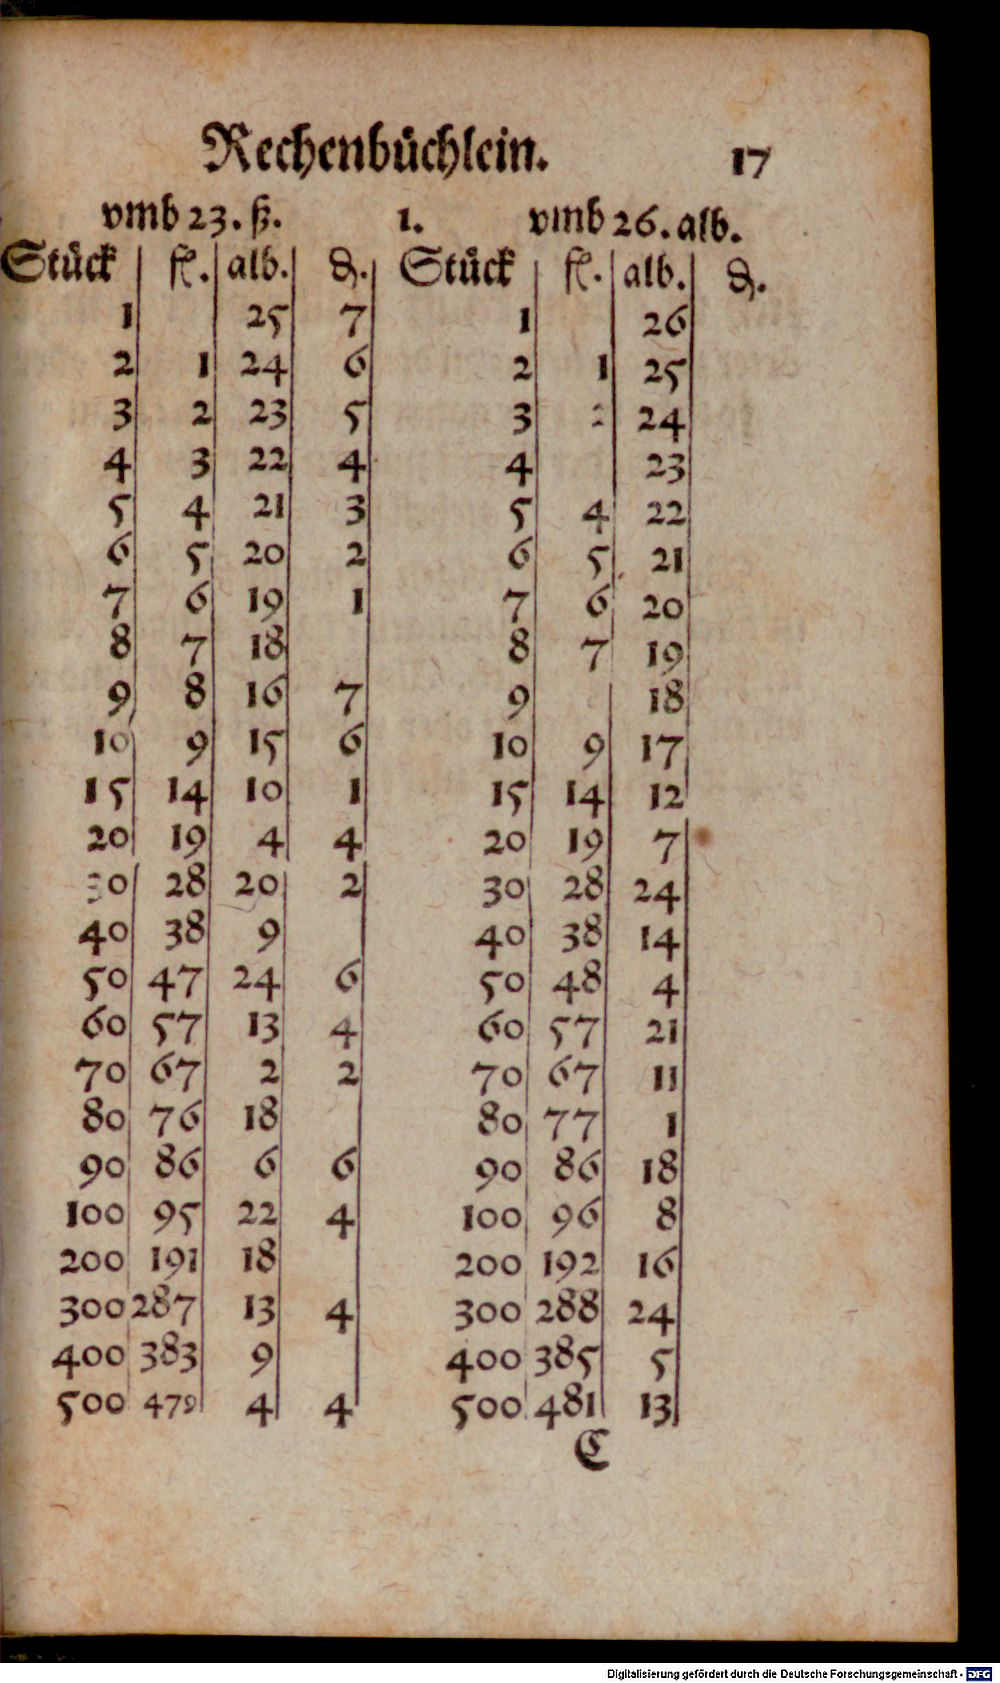 Rechenbüchlein. 17
vmb 23. ß. 1. vmb 26. alb.
Stück fl. alb. ₰. Stück fl. alb. ₰.
1 25 7 1 26
2 1 24 6 2 1 25
3 2 23 5 3 2 24
4 3 22 4 4 23
5 4 21 3 5 4 22
6 5 20 2 6 5 21
7 6 19 1 7 6 20
8 7 18 8 7 19
9 8 16 7 9 18
10 9 15 6 10 9 17
15 14 10 1 15 14 12
20 19 4 4 20 19 7
30 28 20 2 30 28 24
40 38 9 40 38 14
50 47 24 6 50 48 4
60 57 13 4 60 57 21
70 67 2 2 70 67 11
80 76 18 80 77 1
90 86 6 6 90 86 18
100 95 22 4 100 96 8
200 191 18 200 192 16
300 287 13 4 300 288 24
400 383 9 400 385 5
500 479 4 4 500 481 13
C
Digitalisierung gefördert durch die Deutsche Forschungsgemeinschaft - DFG